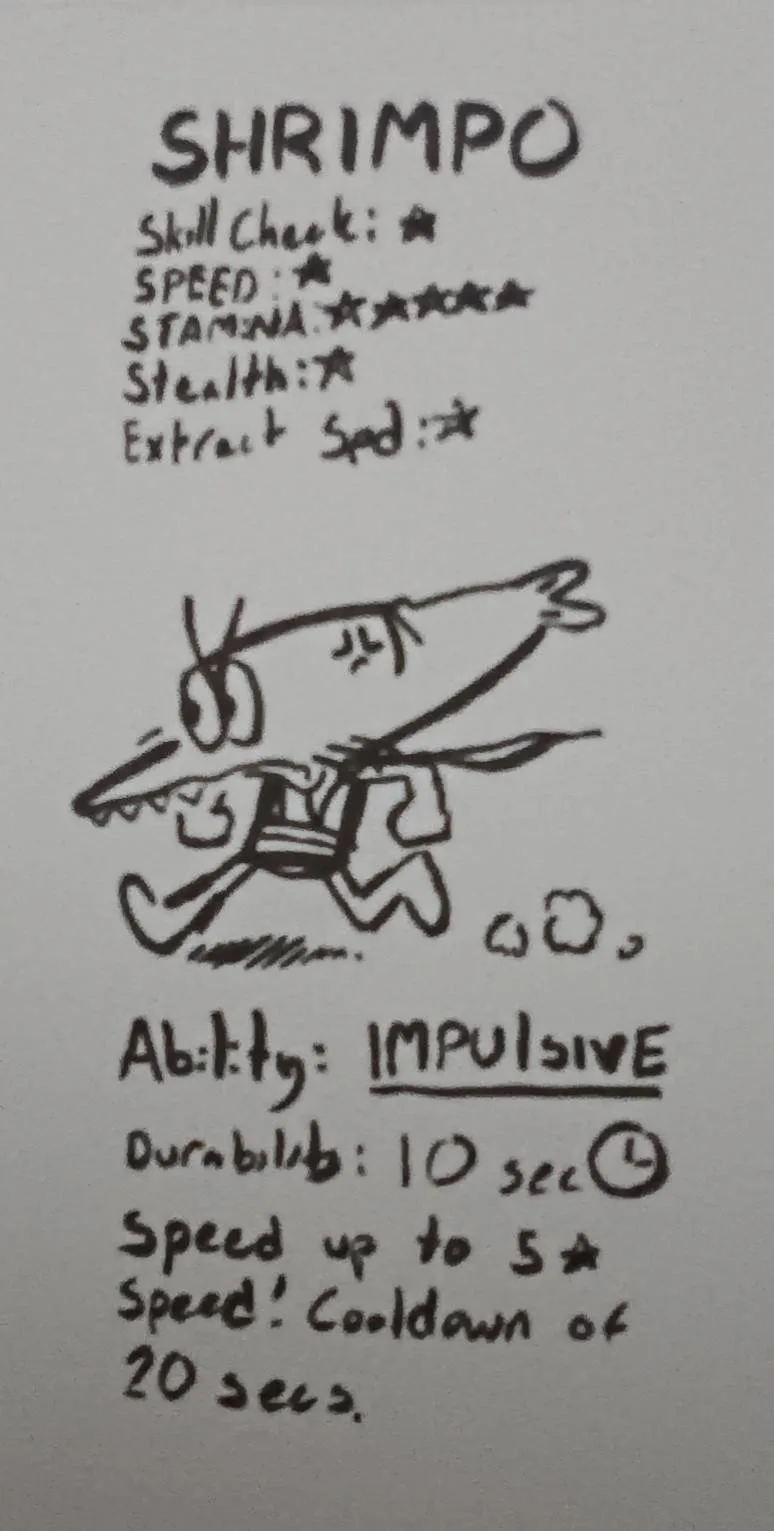 SHRIMPO
Skill Check: ★
SPEED: ★
STAMINA: ★★★★★
Stealth: ★
Extract Spd: ★
Ability: IMPULSIVE
Durability: 10 sec
Speed up to 5 ★
Speed! Cooldown of
20 secs.